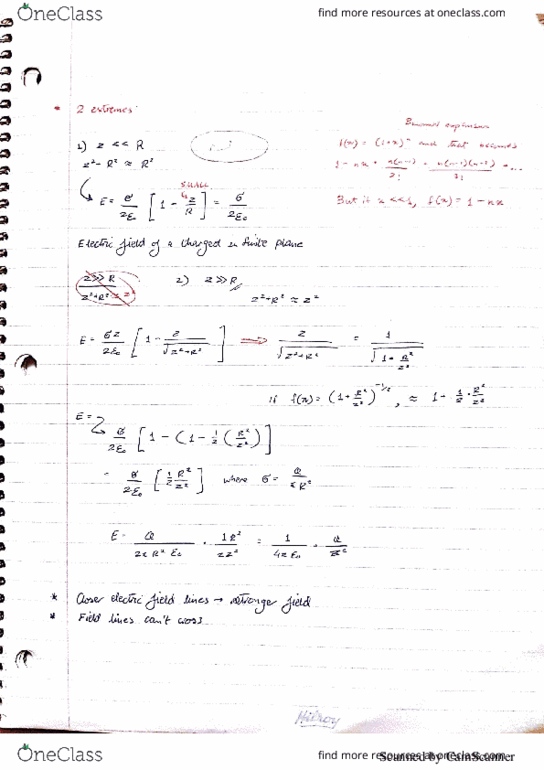 OneClass
find more resources at oneclass.com
* 2 extremes:
Binomial expansion
1) z << R
f(x) = (1+x)ⁿ such that
z² - R² ≈ R²
1 - nx + n(n-1)/2! + n(n-1)(n-2)/3! + ...
SMALL
E = σ/2ε₀ [1 - z/R] = σ/2ε₀
But if x <<1, f(x) = 1 - nx
Electric field of a charged infinite plane
z>> R
2) z >> R
z²+R² ≈ z²
z²+R² ≈ z²
E = σz/2ε₀ [1 - z/√(z²+R²)] ⇒ z/√(z²+R²) = 1/√(1+R²/z²)
if f(x) = (1+R²/z²)^(-1/2), ≈ 1 + 1/2 · R²/z²
E =
σ/2ε₀ [1 - (1 - 1/2 (R²/z²)]
= σ/2ε₀ [1/2 R²/z²] where σ = Q/πR²
E = Q/2πR²ε₀ · 1R²/2z² = 1/4πε₀ · Q/z²
* Closer electric field lines → stronger field
* Field lines can't cross
Hilroy
OneClass
find more resources at oneclass.com
Scanned by CamScanner